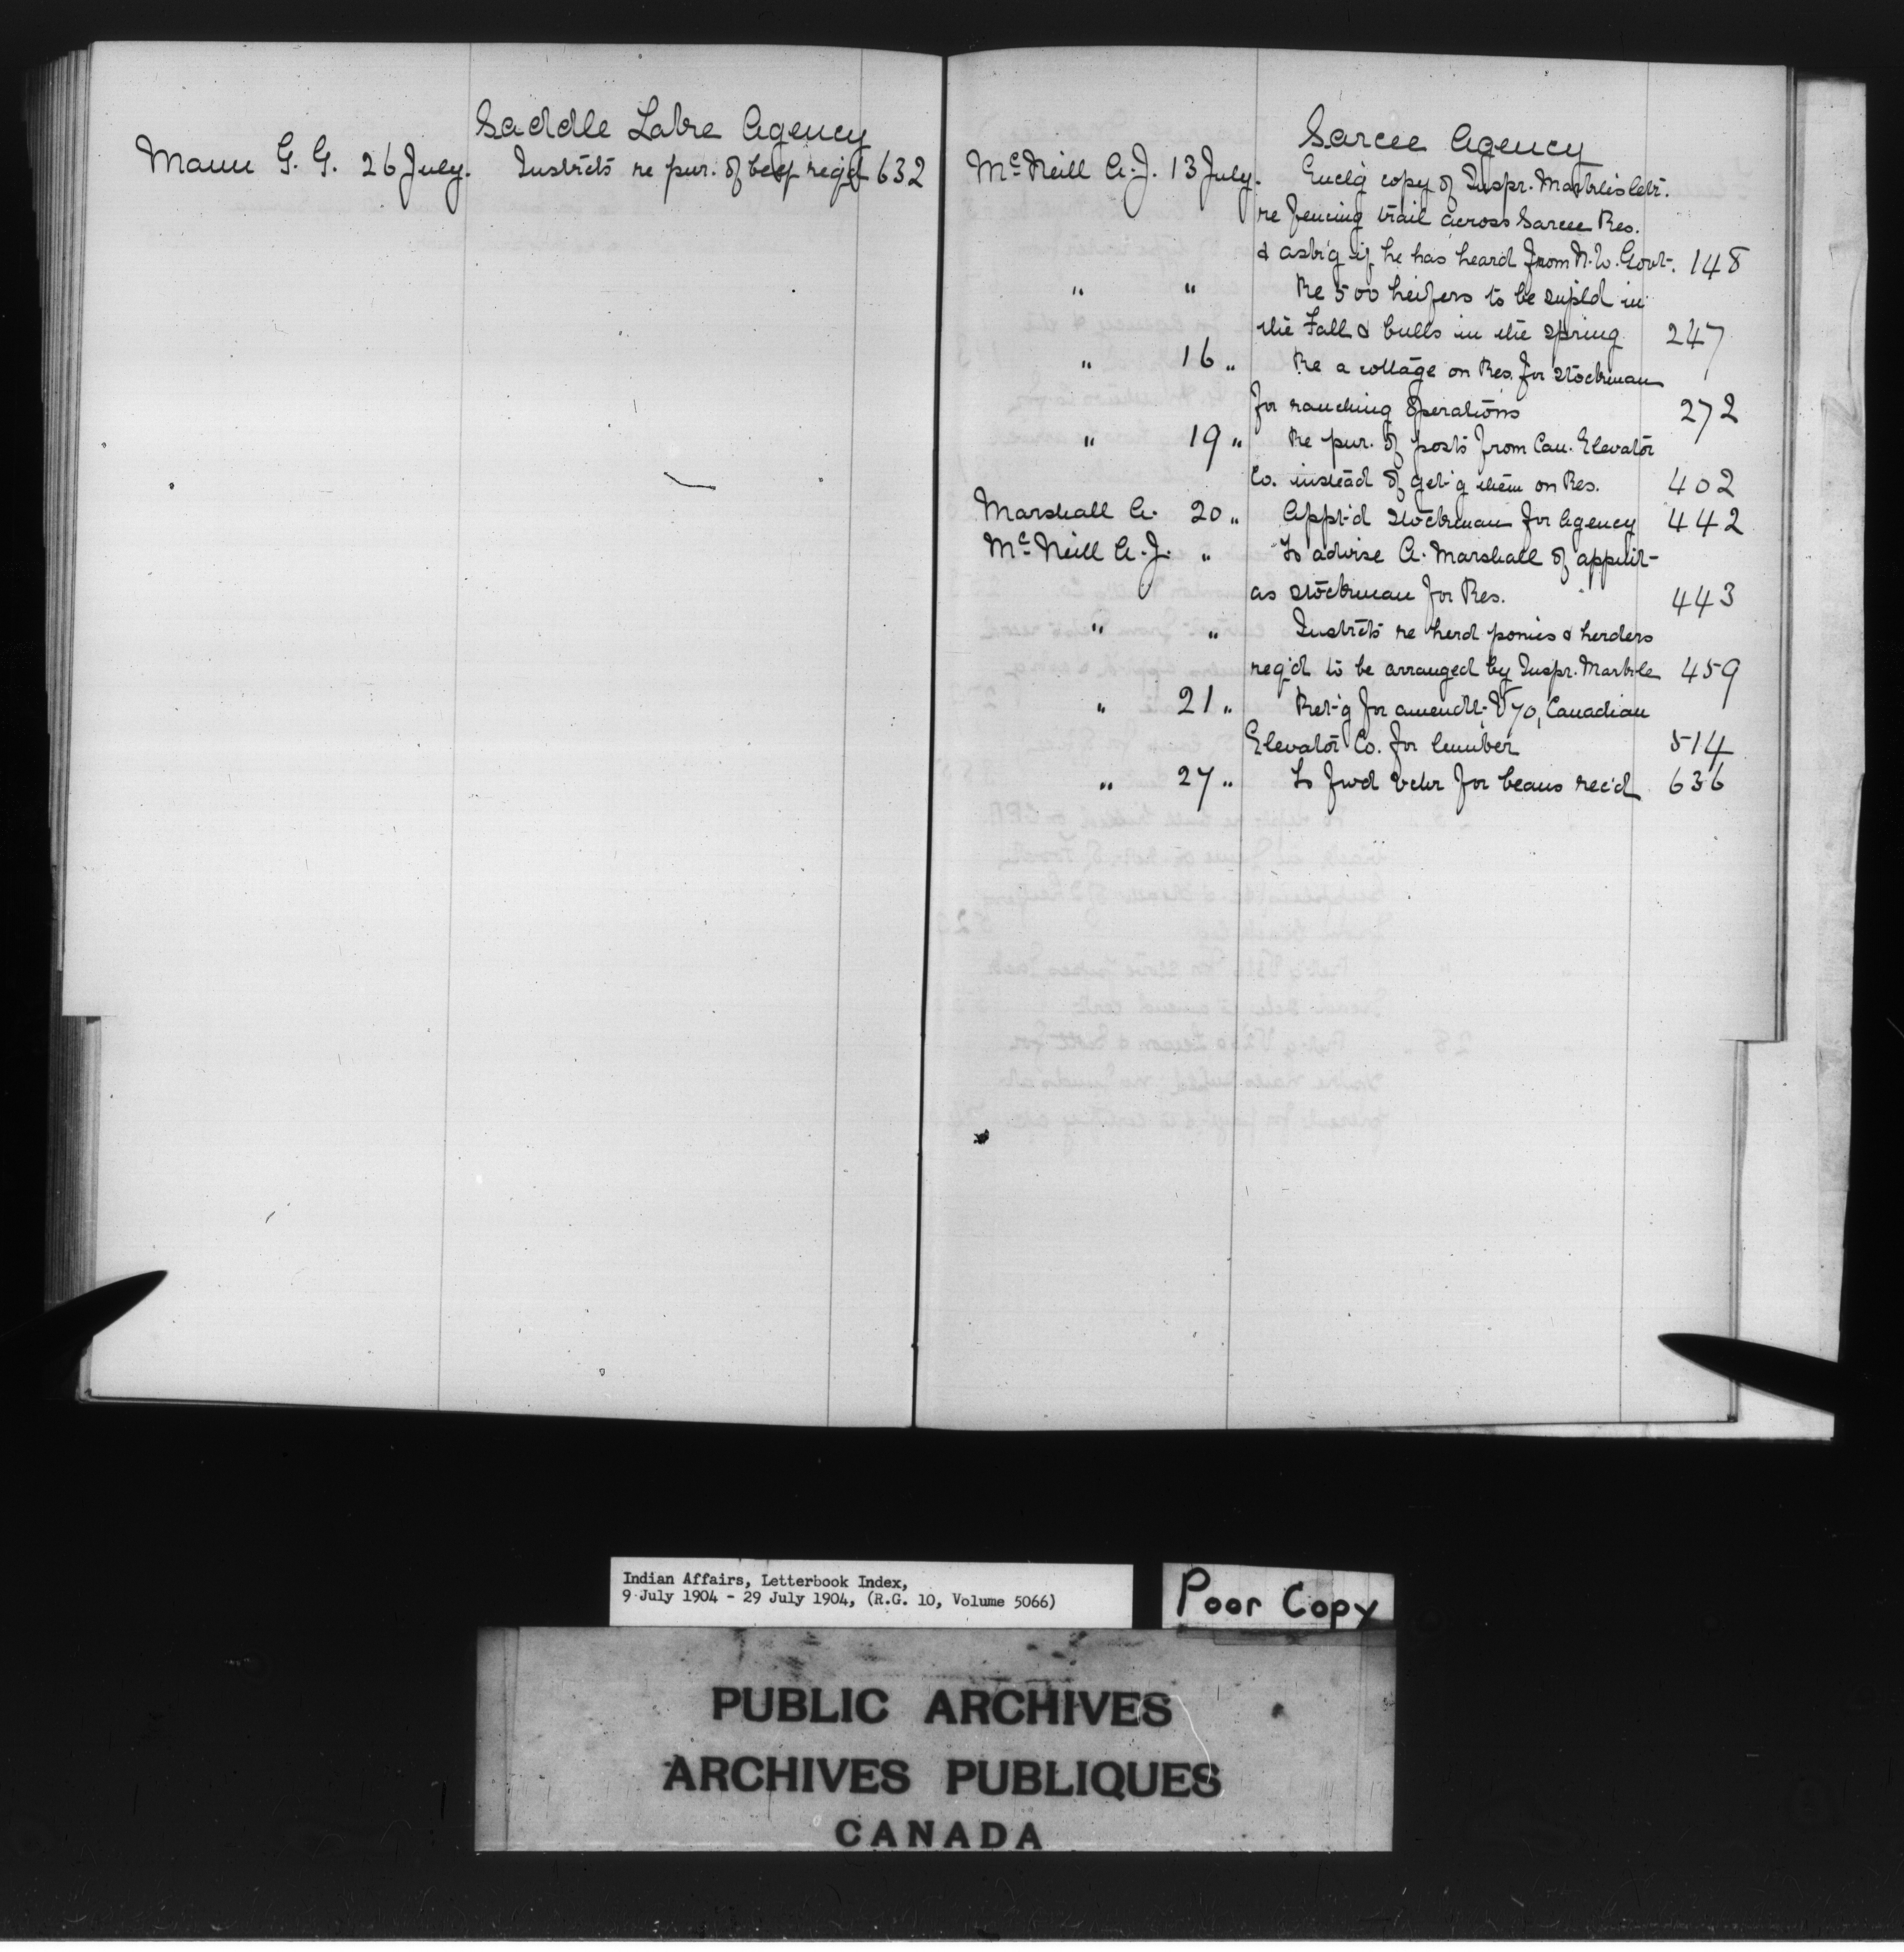 Saddle Lake Agency
Mann G. G. 26 July. Instrcts re pur. of beef req'd 632
Sarcee Agency
McNeill A. J. 13 July. Encl'g copy of Inspr. Markle's letr.
re fencing trail across Sarcee Res.
& ask'g if he has heard from N. W. Govt. 148
" " Re 500 heifers to be supld in
the Fall & bulls in the spring 247
" 16 " Re a cottage on Res. for stockman
for ranching operations 272
" 19 " Re pur. of posts from Can. Elevator
Co. instead of get'g them on Res. 402
Marshall A. 20 " Appt'd stockman for Agency 442
McNeill A. J. " To advise A. Marshall of appmt
as stockman for Res. 443
" " Instrcts re herd ponies & herders
req'd to be arranged by Inspr. Markle 459
" 21 " Ret'g for amendt. V 70, Canadian
Elevator Co. for lumber 514
" 27 " To fwd vchr for beans rec'd 636
Indian Affairs, Letterbook Index,
9 July 1904 - 29 July 1904, (R.G. 10, Volume 5066)
Poor Copy
PUBLIC ARCHIVES
ARCHIVES PUBLIQUES
CANADA